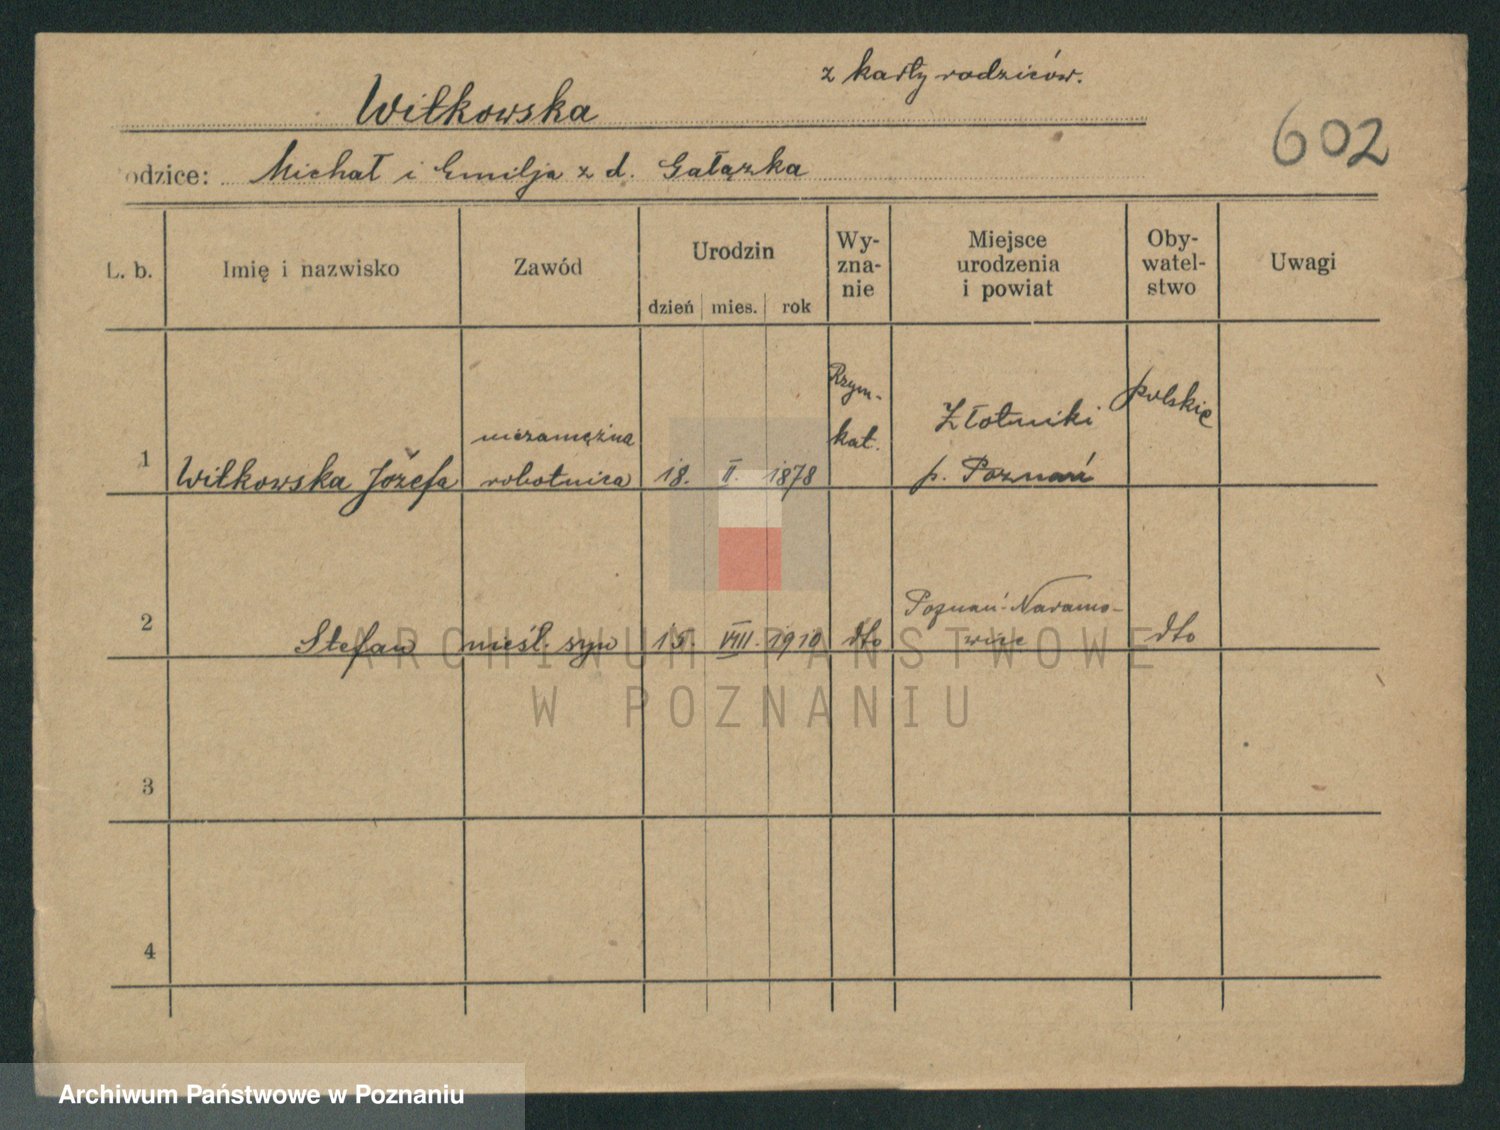 z karty rodziców.
Wilkowska
602
odzice: Michał i Emilja z d. Gałązka
L. b.
Imię i nazwisko
Zawód
Urodzin
dzień mies. rok
Wy-
zna-
nie
Miejsce
urodzenia
i powiat
Oby-
watel-
stwo
Uwagi
1
Wilkowska Józefa
niezamężna
robotnica
18. II. 1878
Rzym-
kat.
Złotniki
p. Poznań
polskie
2
Stefan
nieśl. syn
15. VIII. 1910
dto
Poznań-Naramo-
wice
dto
3
4
ARCHIWUM PAŃSTWOWE
W POZNANIU
Archiwum Państwowe w Poznaniu